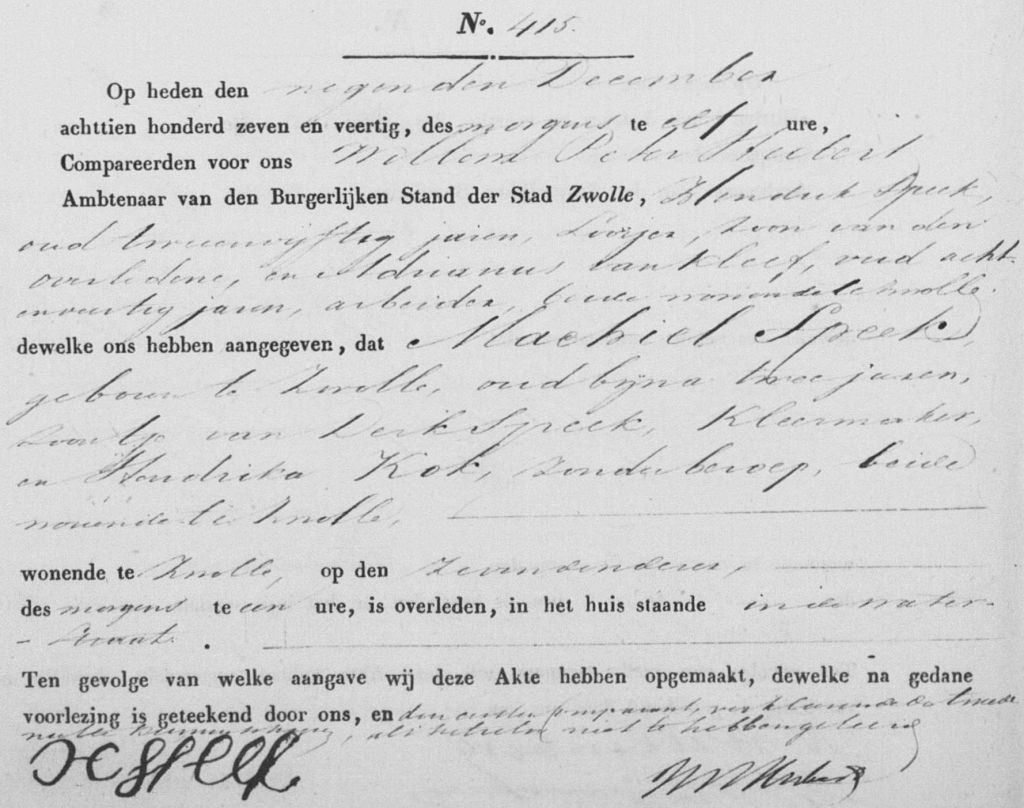 No. 415.
Op heden den negenden December
achttien honderd zeven en veertig, des morgens te elf ure,
Compareerden voor ons Willem Peter Hubert
Ambtenaar van den Burgerlijken Stand der Stad Zwolle, Hendrik Speek,
oud tweeenvijftig jaren, zoon van den
overledene, en Adrianus van Kleef, oud acht-
enveertig jaren, arbeider, beide wonende te Zwolle.
dewelke ons hebben aangegeven, dat Machiel Speek,
geboren te Zwolle, oud bijna twee jaren,
zoontje van Derk Speek, Kleermaker,
en Hendrika Kok, zonder beroep, beide
wonende te Zwolle,
wonende te Zwolle, op den zevendendezer,
des morgens te een ure, is overleden, in het huis staande in de Water-
-straat.
Ten gevolge van welke aangave wij deze Akte hebben opgemaakt, dewelke na gedane
voorlezing is geteekend door ons, en den eersten Comparant, verklarende de tweede
niet te kunnen schrijven, als hetzelve niet te hebben geleerd